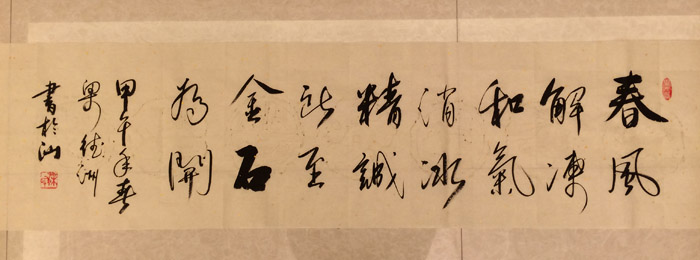 春風
解凍
和氣
消冰
精誠
所至
金石
為開
甲午年春
德洲
書於汕